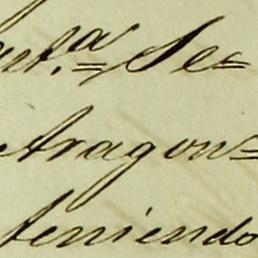 nt.ª= Se=
Aragon=
teniendo